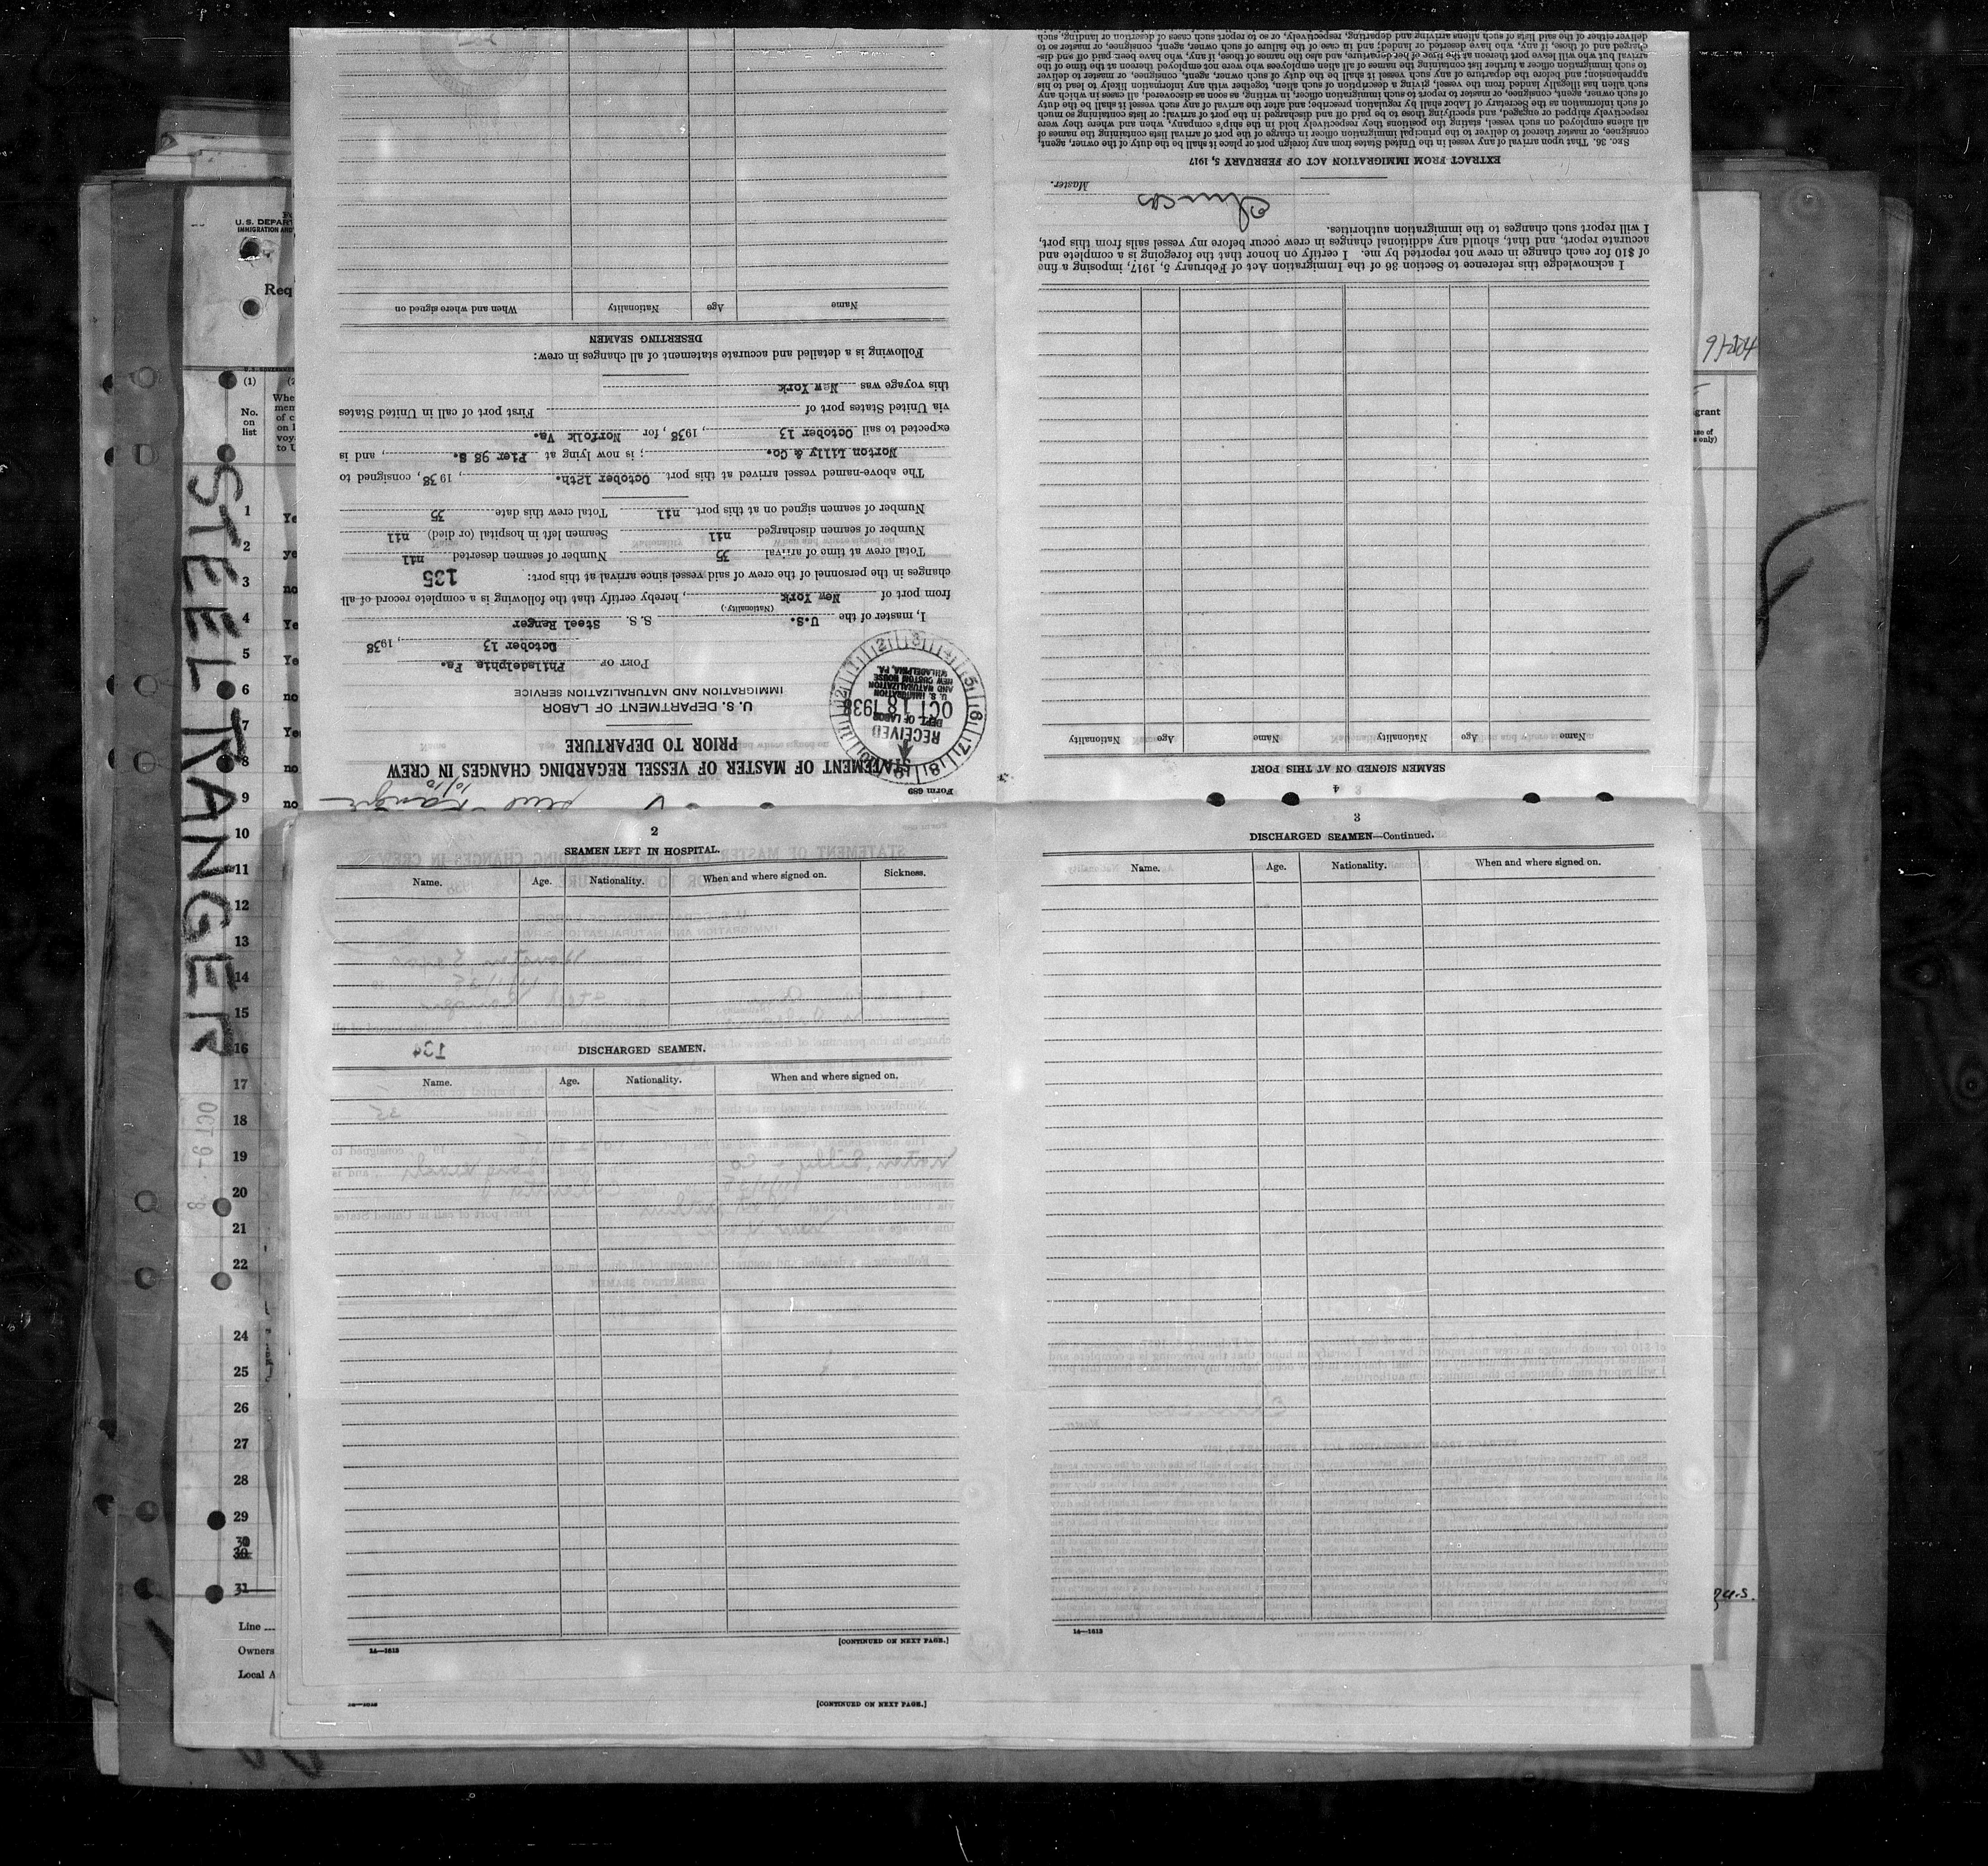 Form 689
STATEMENT OF MASTER OF VESSEL REGARDING CHANGES IN CREW
PRIOR TO DEPARTURE
U. S. DEPARTMENT OF LABOR
IMMIGRATION AND NATURALIZATION SERVICE
RECEIVED
DEPT. OF LABOR
OCT 18 1938
U. S. IMMIGRATION
AND NATURALIZATION
NEW CUSTOM HOUSE
PHILADELPHIA, PA.
PORT OF Philadelphia Pa.
October 13, 1938
I, master of the U.S. S. S. Steel Ranger
(Nationality.)
from port of New York, hereby certify that the following is a complete record of all
changes in the personnel of the crew of said vessel since arrival at this port: 135
Total crew at time of arrival 35 Number of seamen deserted nil
Number of seamen discharged nil Seamen left in hospital (or died) nil
Number of seamen signed on at this port nil Total crew this date 35
The above-named vessel arrived at this port October 12th., 19 38, consigned to
Norton Lilly & Co. ; is now lying at Pier 98 S., and is
expected to sail October 13, 1938, for Norfolk Va.
via United States port of First port of call in United States
this voyage was New York
Following is a detailed and accurate statement of all changes in crew:
DESERTING SEAMEN
Name Age Nationality When and where signed on
4
SEAMEN SIGNED ON AT THIS PORT
Name Age Nationality Name Age Nationality
I acknowledge this reference to Section 36 of the Immigration Act of February 5, 1917, imposing a fine
of $10 for each change in crew not reported by me. I certify on honor that the foregoing is a complete and
accurate report, and that, should any additional changes in crew occur before my vessel sails from this port,
I will report such changes to the immigration authorities.
Master.
EXTRACT FROM IMMIGRATION ACT OF FEBRUARY 5, 1917
SEC. 36. That upon arrival of any vessel in the United States from any foreign port or place it shall be the duty of the owner, agent,
consignee, or master thereof to deliver to the principal immigration officer in charge of the port of arrival lists containing the names of
all aliens employed on such vessel, stating the positions they respectively hold in the ship's company, when and where they were
respectively shipped or engaged, and specifying those to be paid off and discharged in the port of arrival; or lists containing so much
of such information as the Secretary of Labor shall by regulation prescribe; and after the arrival of any such vessel it shall be the duty
of such owner, agent, consignee, or master to report to such immigration officer, in writing, as soon as discovered, all cases in which any
such alien has illegally landed from the vessel, giving a description of such alien, together with any information likely to lead to his
apprehension; and before the departure of any such vessel it shall be the duty of such owner, agent, consignee, or master to deliver
to such immigration officer a further list containing the names of all alien employees who were not employed thereon at the time of the
arrival but who will leave port thereon at the time of her departure, and also the names of those, if any, who have been paid off and dis-
charged and of those, if any, who have deserted or landed; and in case of the failure of such owner, agent, consignee, or master so to
deliver either of the said lists of such aliens arriving and departing, respectively, or so to report such cases of desertion or landing, such
2
SEAMEN LEFT IN HOSPITAL.
Name. Age. Nationality. When and where signed on. Sickness.
DISCHARGED SEAMEN.
Name. Age. Nationality. When and where signed on.
[CONTINUED ON NEXT PAGE.]
14—1613
3
DISCHARGED SEAMEN—Continued.
Name. Age. Nationality. When and where signed on.
14—1613
[CONTINUED ON NEXT PAGE.]
STEEL RANGER
U. S. DEPART
IMMIGRATION AND
Req
(1)
No.
on
list
1 Ye
2 ye
3 no
4 Ye
5 Ye
6 no
7 Ye
8 no
9 no
10
11
12
13
14
15
16
17
18
19
20
21
22
24
25
26
27
28
29
30
31
Line
Owners
Local A